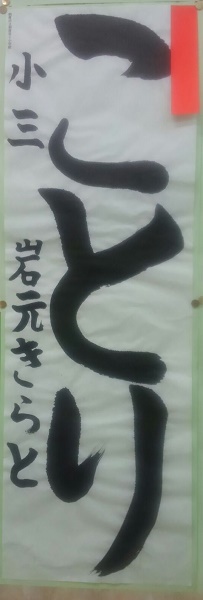 ことり
小三 岩元きらと